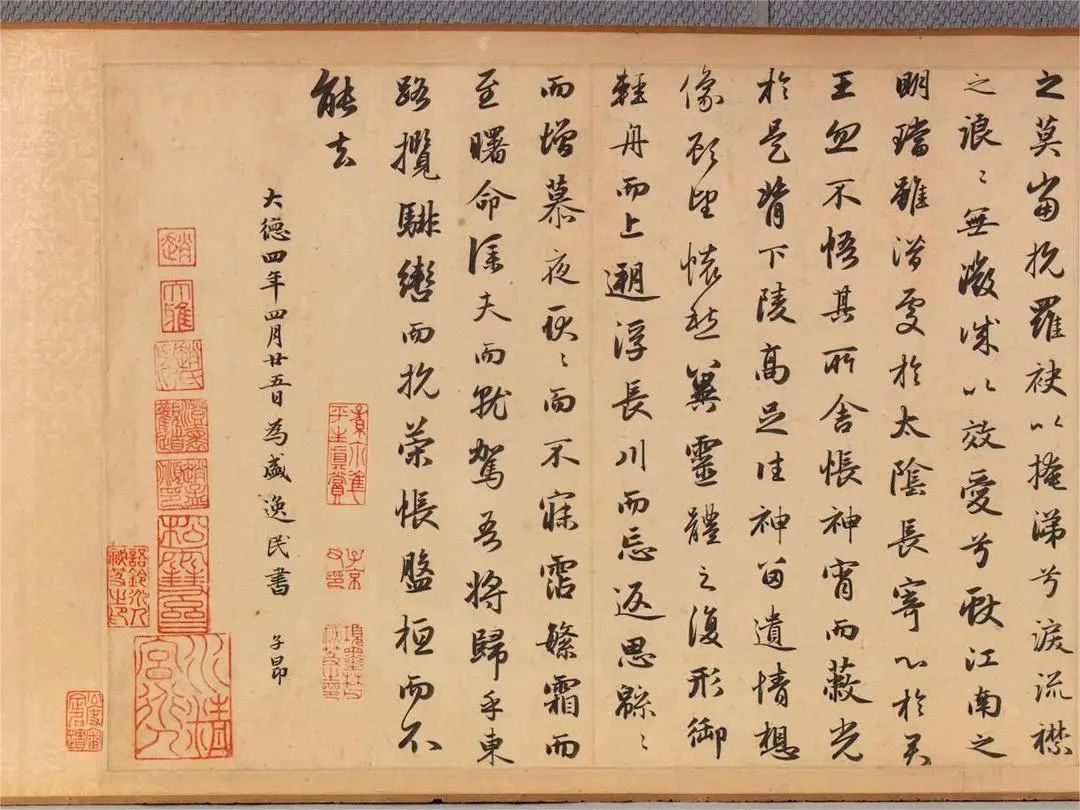 之莫當抗羅袂以掩涕兮淚流襟
之浪〻無微誠以效愛兮獻江南之
明璫雖潜處於太陰長寄心於君
王忽不悟其所舍悵神宵而蔽光
於是背下陵高足往神留遺情想
像顧望懷愁冀靈體之復形御
輕舟而上遡浮長川而忘返思緜〻
而增慕夜耿〻而不寐霑繁霜而
至曙命僕夫而就駕吾將歸乎東
路攬騑轡而抗策悵盤桓而不
能去
大德四年四月廿五日為盛逸民書 子昂
平生真賞
子京父印
項墨林父秘笈之印
趙
大雅
澄懷觀道
松雪齋